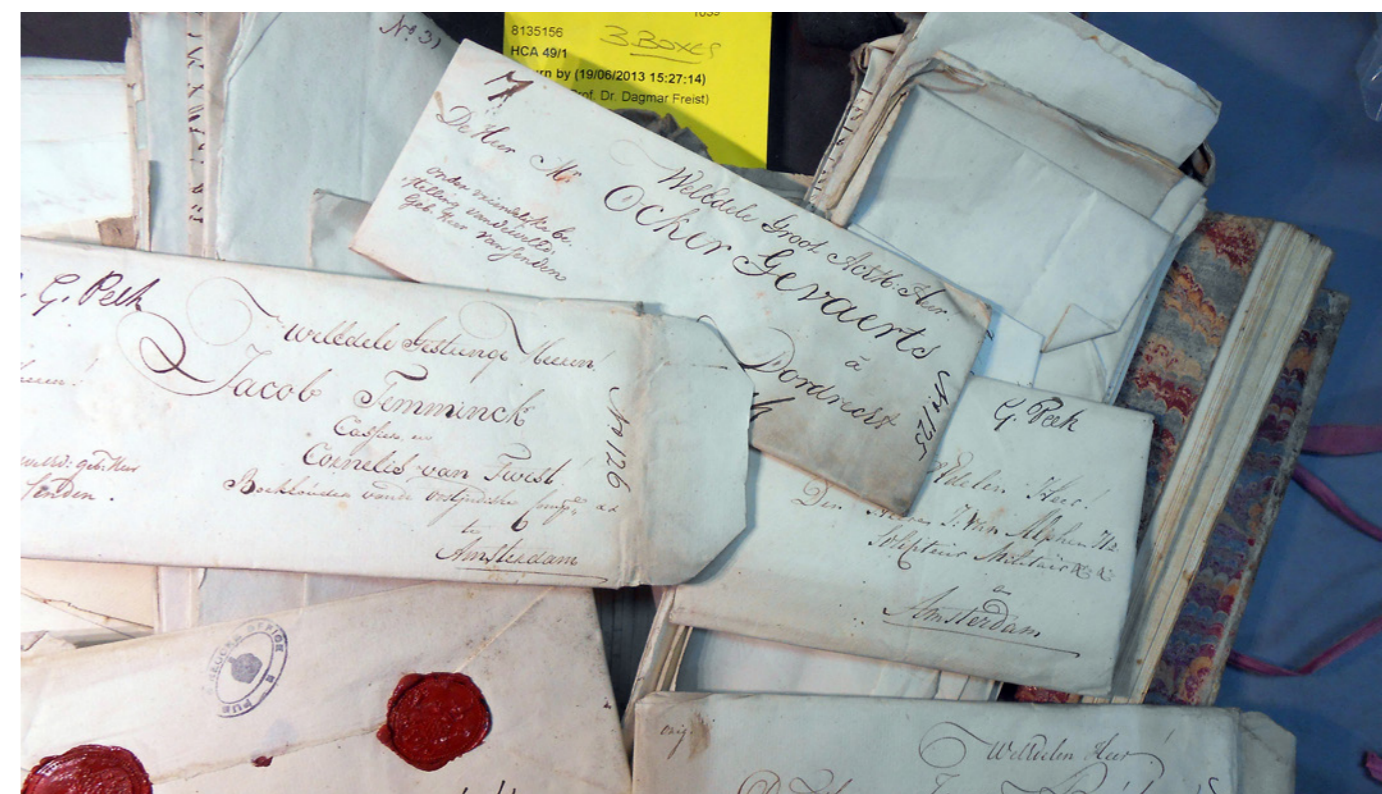 8135156
3 Boxes
HCA 49/1
rn by (19/06/2013 15:27:14)
rof. Dr. Dagmar Freist)
No 31
7
De Heer Mr
Welledele Groot Achtb: Heer.
Ocker Gevaerts
à
Dordrecht
No 125
onder vriendelyke be-
stelling van
Geb. Heer van Senden
G. Pelk
Welledele Gestrenge Heeren!
Jacob Temminck
Cassier en
Cornelis van Twist!
Boekhouder vande oostindische Comp
te
Amsterdam
No 126
geb: Heer
Senden.
G. Pelk
Edelen Heer!
Den Heere J. van Alphen
Militair
Amsterdam
PUB
orig.
Weledelen Heer